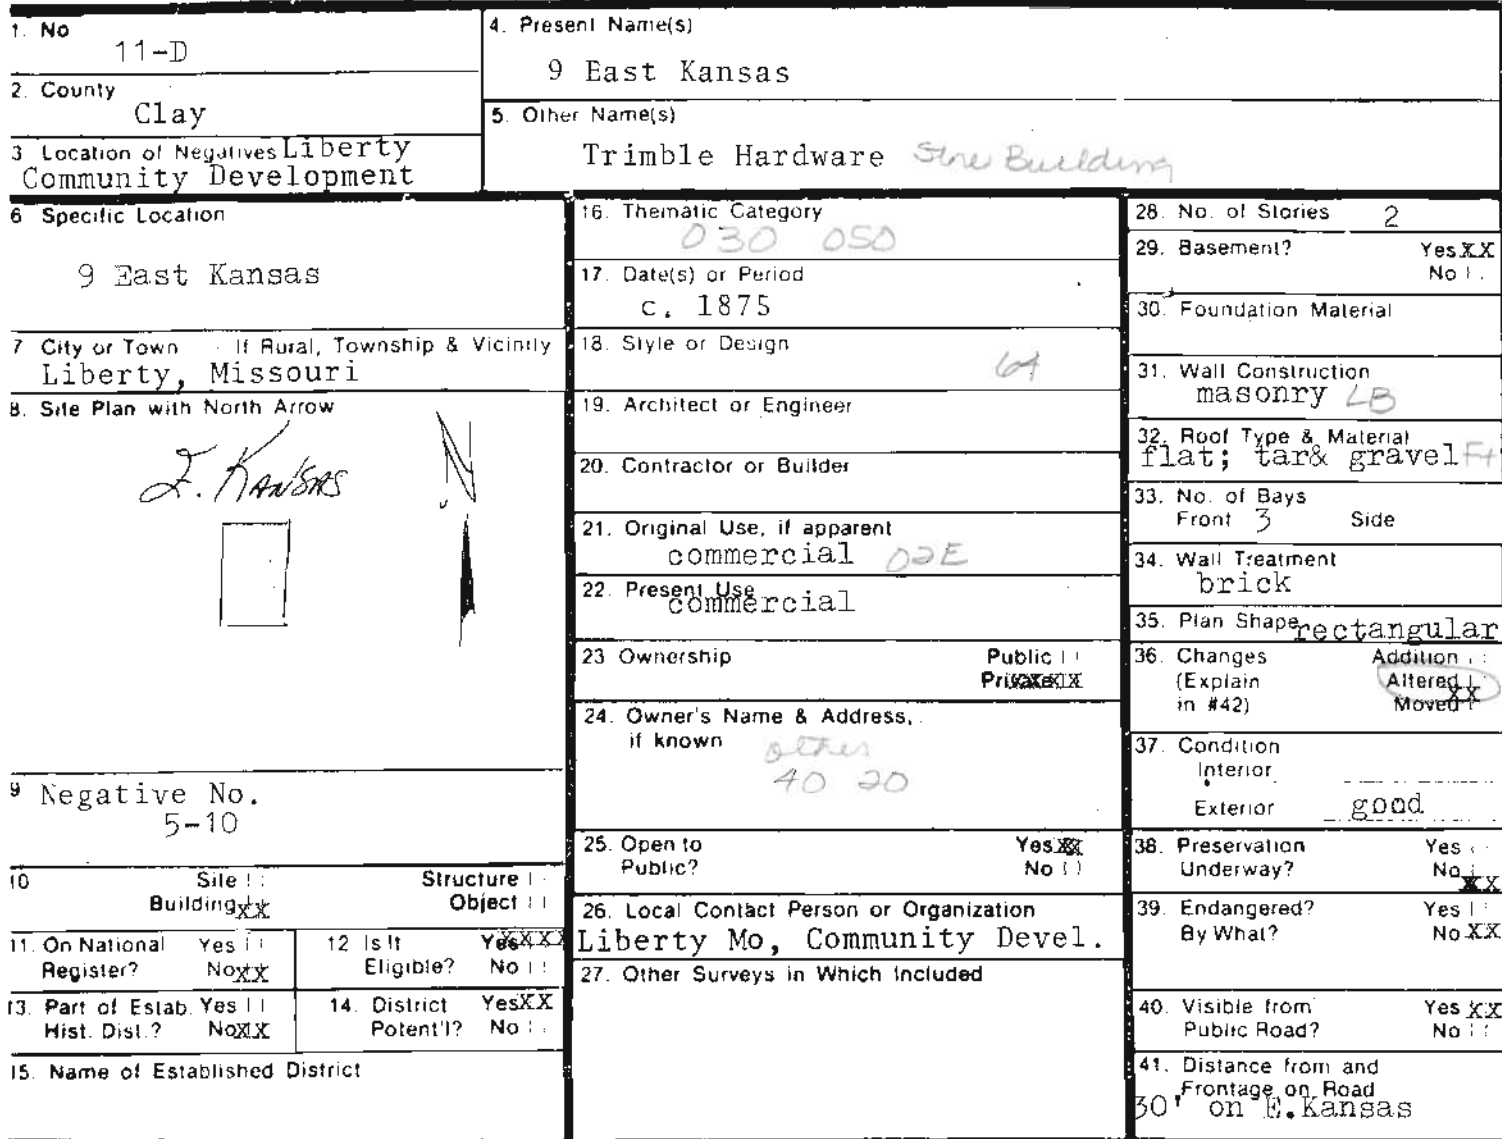 1. No
11-D
2. County
Clay
3 Location of Negatives Liberty
Community Development
4. Present Name(s)
9 East Kansas
5. Other Name(s)
Trimble Hardware Store Building
6 Specific Location
9 East Kansas
7 City or Town If Rural, Township & Vicinity
Liberty, Missouri
8. Site Plan with North Arrow
E. KANSAS N
9 Negative No.
5-10
10 Site Structure
Building XX Object
11. On National Yes
Register? No XX
12 Is It Yes XXXX
Eligible? No
13. Part of Estab. Yes
Hist. Dist.? No XX
14. District Yes XX
Potent'l? No
15. Name of Established District
16. Thematic Category
030 050
17. Date(s) or Period
c. 1875
18. Style or Design
64
19. Architect or Engineer
20. Contractor or Builder
21. Original Use, if apparent
commercial 02E
22. Present Use
commercial
23 Ownership Public
Private XX
24. Owner's Name & Address,
if known
other
40 20
25. Open to Yes XX
Public? No
26. Local Contact Person or Organization
Liberty Mo, Community Devel.
27. Other Surveys in Which Included
28. No. of Stories 2
29. Basement? Yes XX
No
30. Foundation Material
31. Wall Construction
masonry LB
32. Roof Type & Material
flat; tar& gravel
33. No. of Bays
Front 3 Side
34. Wall Treatment
brick
35. Plan Shape rectangular
36. Changes Addition
(Explain Altered XX
in #42) Moved
37. Condition
Interior
Exterior good
38. Preservation Yes
Underway? No XX
39. Endangered? Yes
By What? No XX
40. Visible from Yes XX
Public Road? No
41. Distance from and
Frontage on Road
30' on E.Kansas